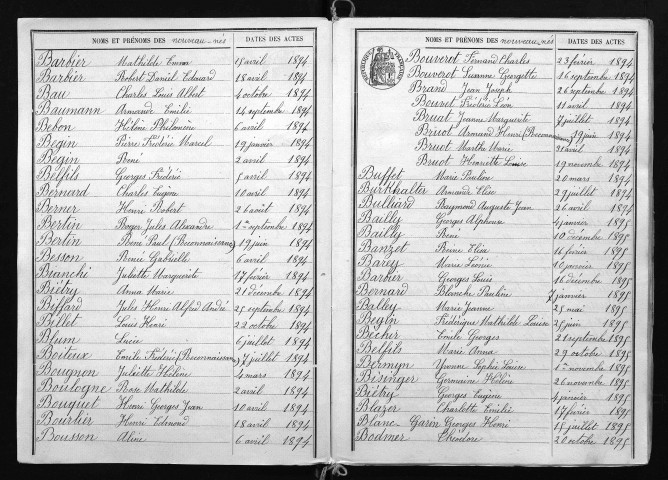 NOMS ET PRÉNOMS DES nouveau-nés DATES DES ACTES
Barbier Mathilde Emma 15 avril 1894
Barbier Robert Daniel Edouard 18 avril 1894
Bau Charles Louis Albert 4 octobre 1894
Baumann Armande Emilie 14 septembre 1894
Bebon Hélène Philomène 6 avril 1894
Begin Pierre Frédéric Marcel 19 janvier 1894
Begin René 2 avril 1894
Belfils Georges Frédéric 5 avril 1894
Bernard Charles Eugène 10 avril 1894
Berner Henri Robert 26 août 1894
Bertin Roger Jules Alexandre 1er septembre 1894
Bertin René Paul (Reconnaissance) 19 juin 1894
Besson Renée Gabrielle 6 avril 1894
Bianchi Juliette Marguerite 17 février 1894
Biétry Anna Marie 21 décembre 1894
Biffard Jules Henri Alfred André 25 septembre 1894
Billet Louis Henri 22 octobre 1894
Blum Lucie 6 juillet 1894
Boiteux Emile Frédéric (Reconnaissance) 7 juillet 1894
Bougnon Juliette Hélène 4 mars 1894
Boulogne Rose Mathilde 2 avril 1894
Bouquet Henri Georges Jean 10 avril 1894
Bourlier Henri Edmond 18 avril 1894
Bousson Aline 6 avril 1894
NOMS ET PRÉNOMS DES nouveau-nés DATES DES ACTES
Bouverot Fernand Charles 23 février 1894
Bouverot Suzanne Georgette 16 septembre 1894
Brand Jean Joseph 26 septembre 1894
Bouret Frédéric Léon 11 avril 1894
Bruat Jeanne Marguerite 7 juillet 1894
Bruot Armand Henri (Reconnaissance) 19 juin 1894
Bruot Marthe Marie 31 avril 1894
Bruot Henriette Louise 19 novembre 1894
Buffet Marie Pauline 20 mars 1894
Burkhalter Armande Elise 29 juillet 1894
Bulliard Raymond Auguste Jean 26 avril 1894
Bailly Georges Alphonse 4 janvier 1895
Bailly René 10 décembre 1895
Banzet René Elisée 16 février 1895
Barey Marie Léonie 10 janvier 1895
Barbier Georges Louis 16 décembre 1895
Bernard Blanche Pauline 7 janvier 1895
Balley Marie Jeanne 25 mai 1895
Begin Frédérique Mathilde Louise 25 juin 1895
Bécher Emile Georges 21 septembre 1895
Belfils Marie Anna 29 octobre 1895
Bermyn Yvonne Sophie Louise 1er novembre 1895
Bisinger Germaine Hélène 26 novembre 1895
Biétry Georges Eugène 4 janvier 1895
Blazer Charlotte Emilie 17 février 1895
Blanc-Garin Georges Henri 15 juillet 1895
Bodmer Théodore 20 octobre 1895